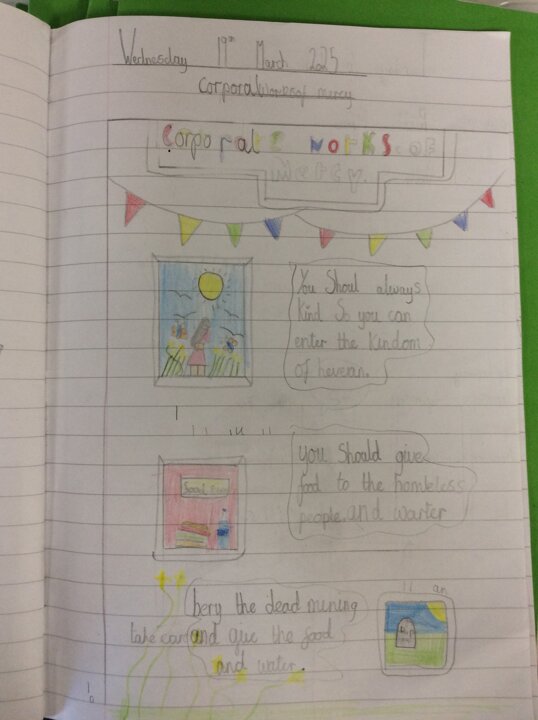 Wednesday 19th March 2025
Corporal Works of mercy
Corporal works of
mercy.
You Shoul always
Kind So you can
enter the Kindom
of hevean.
you Should give
food to the homeless
people. and warter
food
R.I.P
bery the dead mining
take care and give the food
and water.